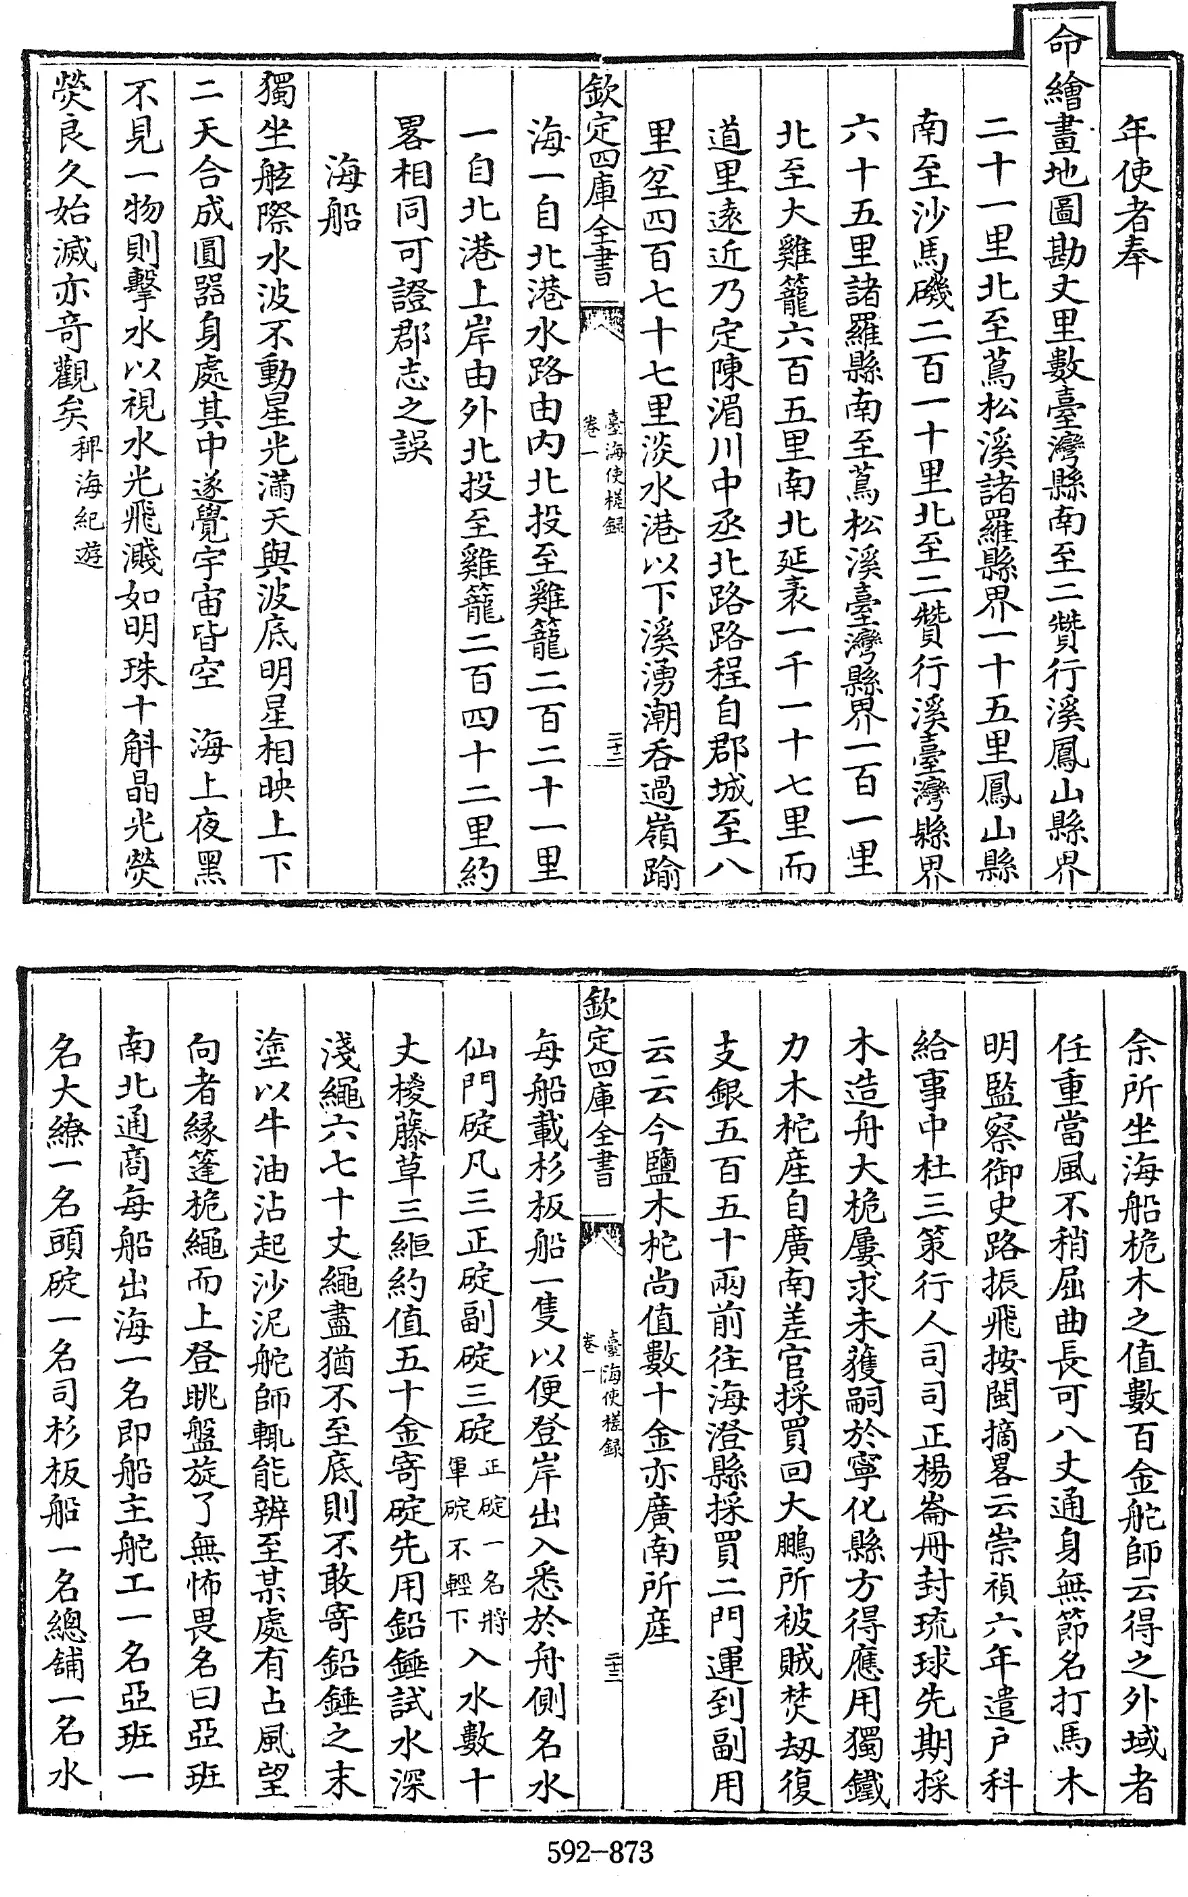 年使者奉
命繪畫地圖勘丈里數臺灣縣南至二贊行溪鳳山縣界
二十一里北至蔦松溪諸羅縣界一十五里鳳山縣
南至沙馬磯二百一十里北至二贊行溪臺灣縣界
六十五里諸羅縣南至蔦松溪臺灣縣界一百一里
北至大雞籠六百五里南北延袤一千一十七里而
道里遠近乃定陳湄川中丞北路路程自郡城至八
里坌四百七十七里淡水港以下溪湧潮呑過嶺踰
欽定四庫全書
臺海使槎録
卷一
二十二
海一自北港水路由内北投至雞籠二百二十一里
一自北港上岸由外北投至雞籠二百四十二里約
畧相同可證郡志之誤
海船
獨坐舷際水波不動星光滿天與波底明星相映上下
二天合成圓器身處其中遂覺宇宙皆空 海上夜黑
不見一物則擊水以視水光飛濺如明珠十斛晶光熒
熒良久始滅亦奇觀矣稗海紀遊
余所坐海船桅木之值數百金舵師云得之外域者
任重當風不稍屈曲長可八丈通身無節名打馬木
明監察御史路振飛按閩摘畧云崇禎六年遣户科
給事中杜三策行人司司正楊崙冊封琉球先期採
木造舟大桅屢求未獲嗣於寧化縣方得應用獨鐵
力木柁産自廣南差官採買回大鵬所被賊焚刼復
支銀五百五十兩前往海澄縣採買二門運到副用
云云今鹽木柁尚值數十金亦廣南所産
欽定四庫全書
臺海使槎録
卷一
二十三
每船載杉板船一隻以便登岸出入悉於舟側名水
仙門碇凡三正碇副碇三碇正碇一名將軍碇不輕下入水數十
丈棕藤草三絙約值五十金寄碇先用鉛錘試水深
淺繩六七十丈繩盡猶不至底則不敢寄鉛錘之末
塗以牛油沾起沙泥舵師輒能辨至某處有占風望
向者緣篷桅繩而上登眺盤旋了無怖畏名曰亞班
南北通商每船出海一名即船主舵工一名亞班一
名大繚一名頭碇一名司杉板船一名總舖一名水
592-873